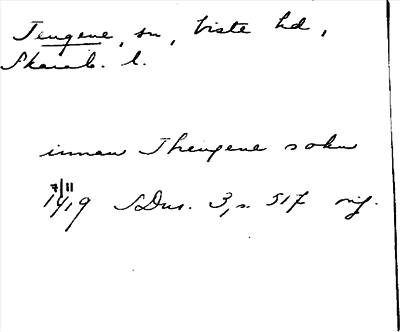 Tengene, sn, Viste hd,
Skarab. l.
innan Thengene sokn
7/11
1419 SDns. 3, s. 517 rig.